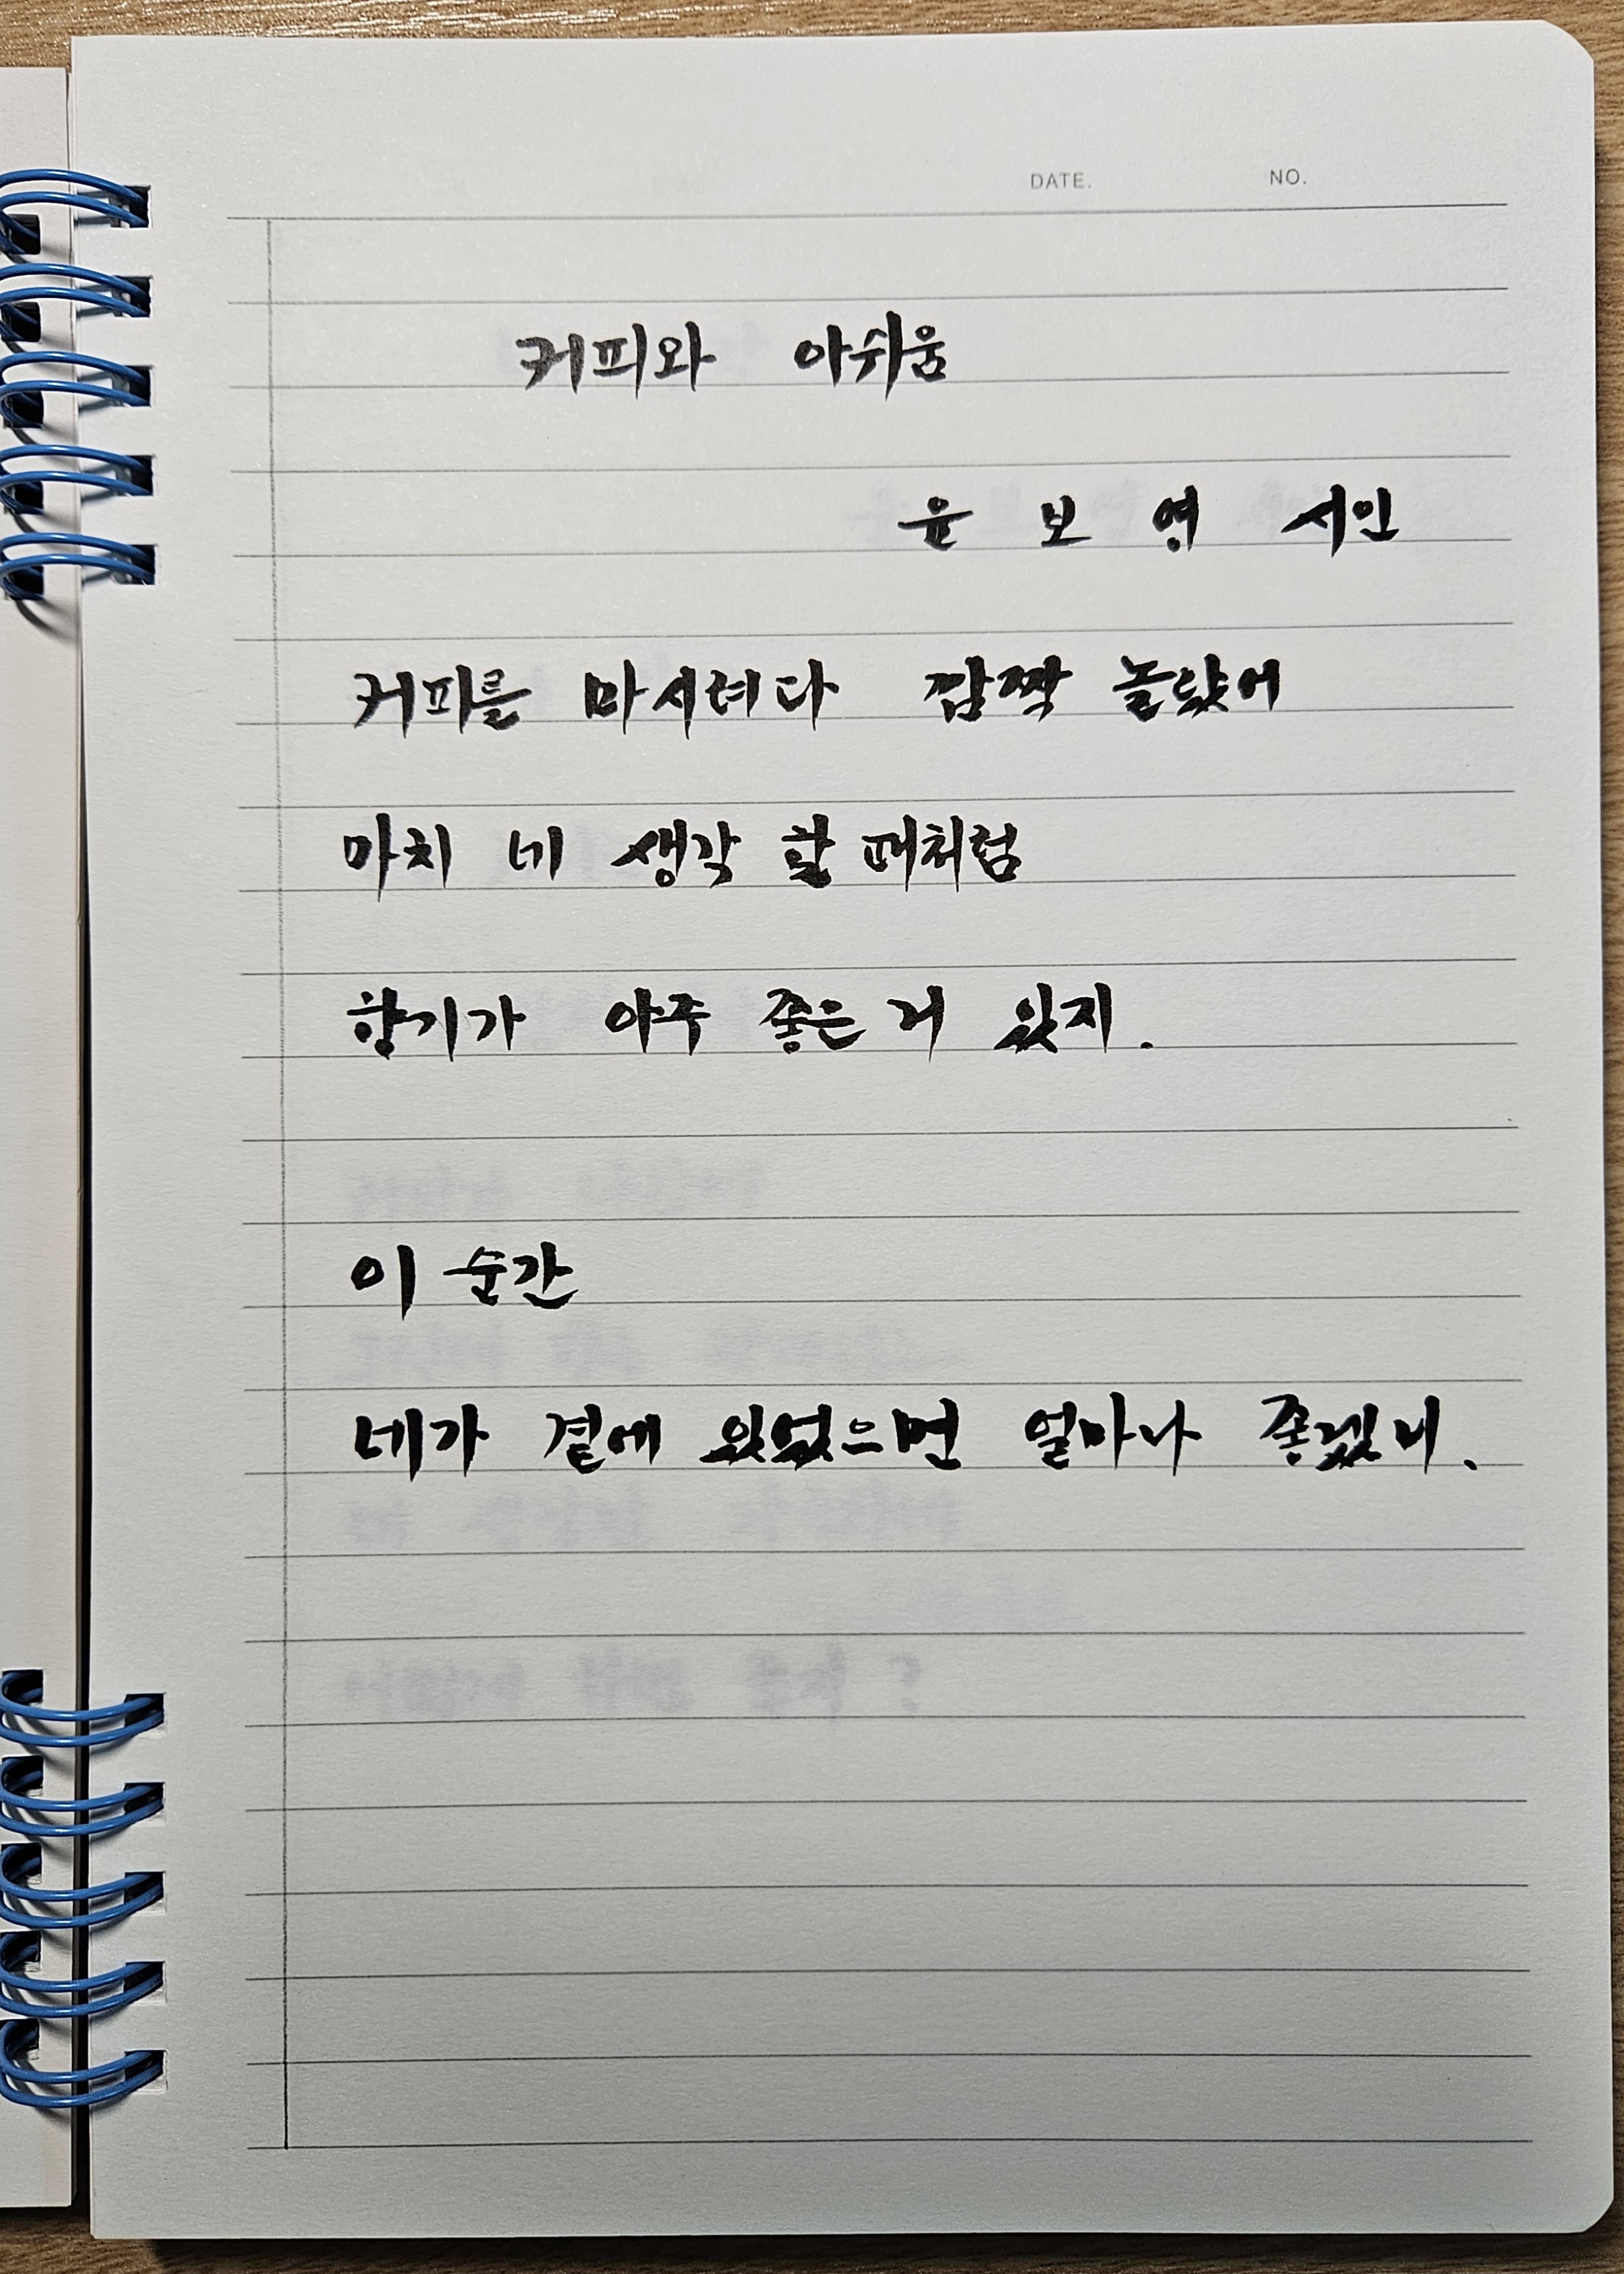 DATE. NO.
커피와 아쉬움
윤 보 영 시인
커피를 마시려다 깜짝 놀랐어
마치 네 생각 할 때처럼
향기가 아주 좋은 거 있지.
이 순간
네가 곁에 있었으면 얼마나 좋겠니.